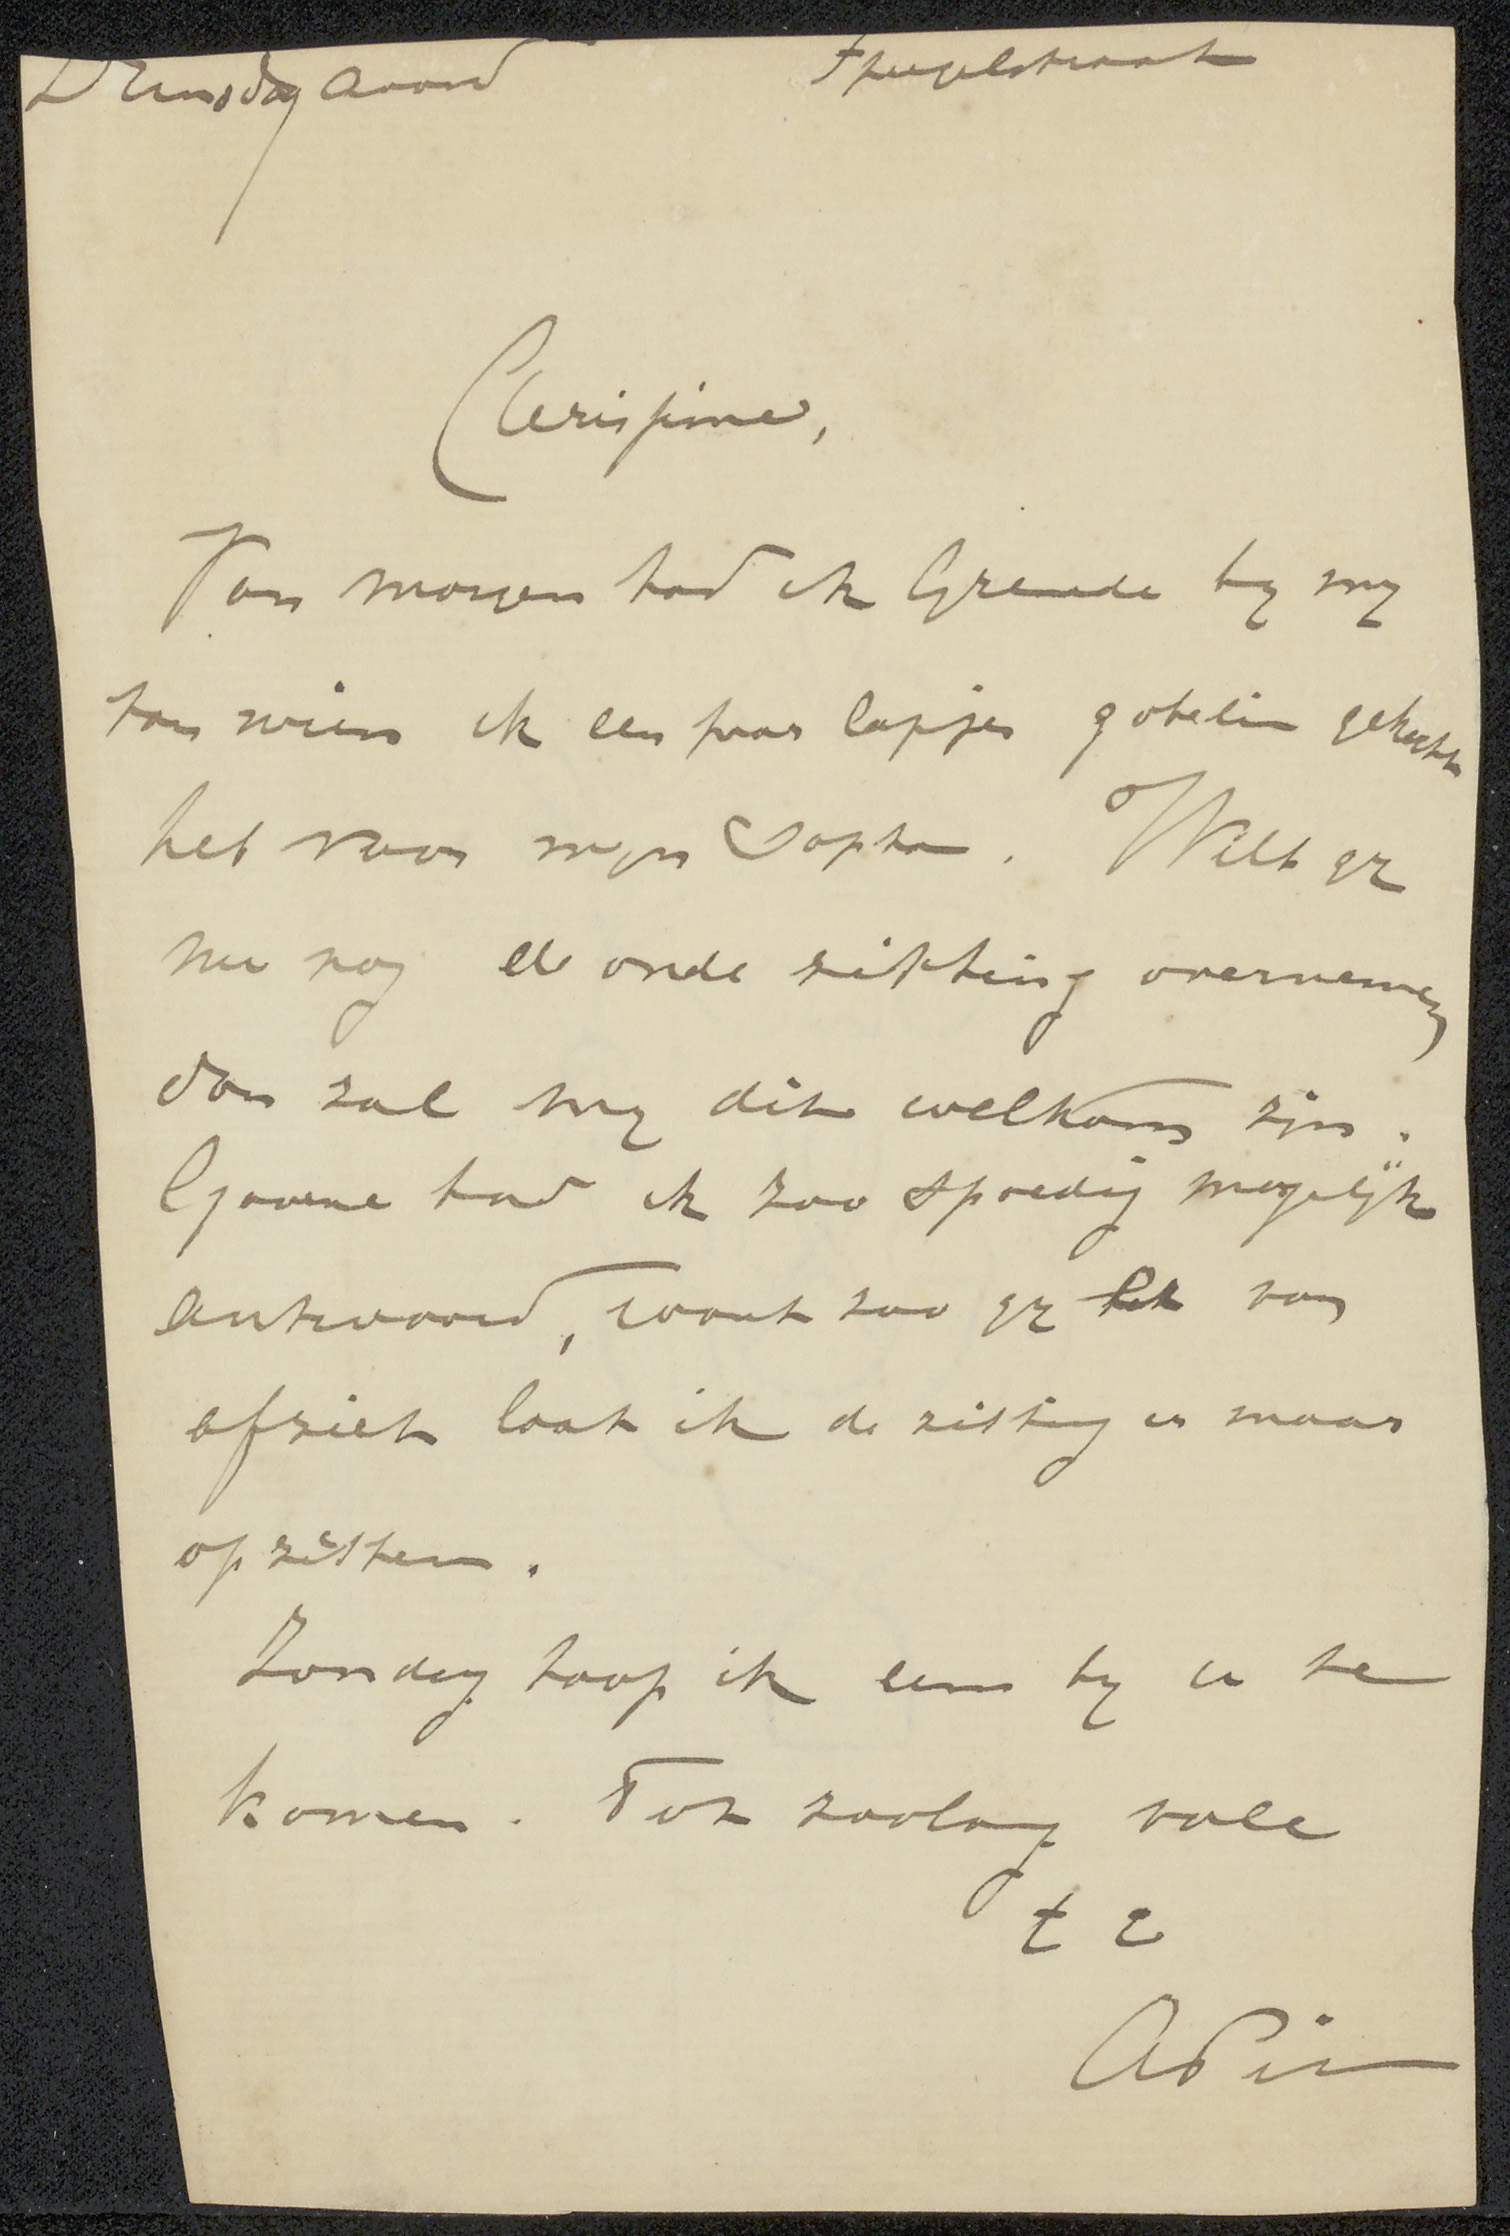 Dinsdag avond Spiegelstraat
Carissime,
Van morgen had ik by my
van wien ik een paar lapjes gobelin gekocht
heb voor mijn Sopha. Wilt gy
nu nog de oude zitting overnemen
dan zal my dit welkom zijn.
Gaarne had ik zoo spoedig mogelijk
antwoord, want zoo gy er van
afziet laat ik de zitting er maar
op zitten.
Zondag hoop ik eens by u te
komen. Tot zoolang vale
t t
APit